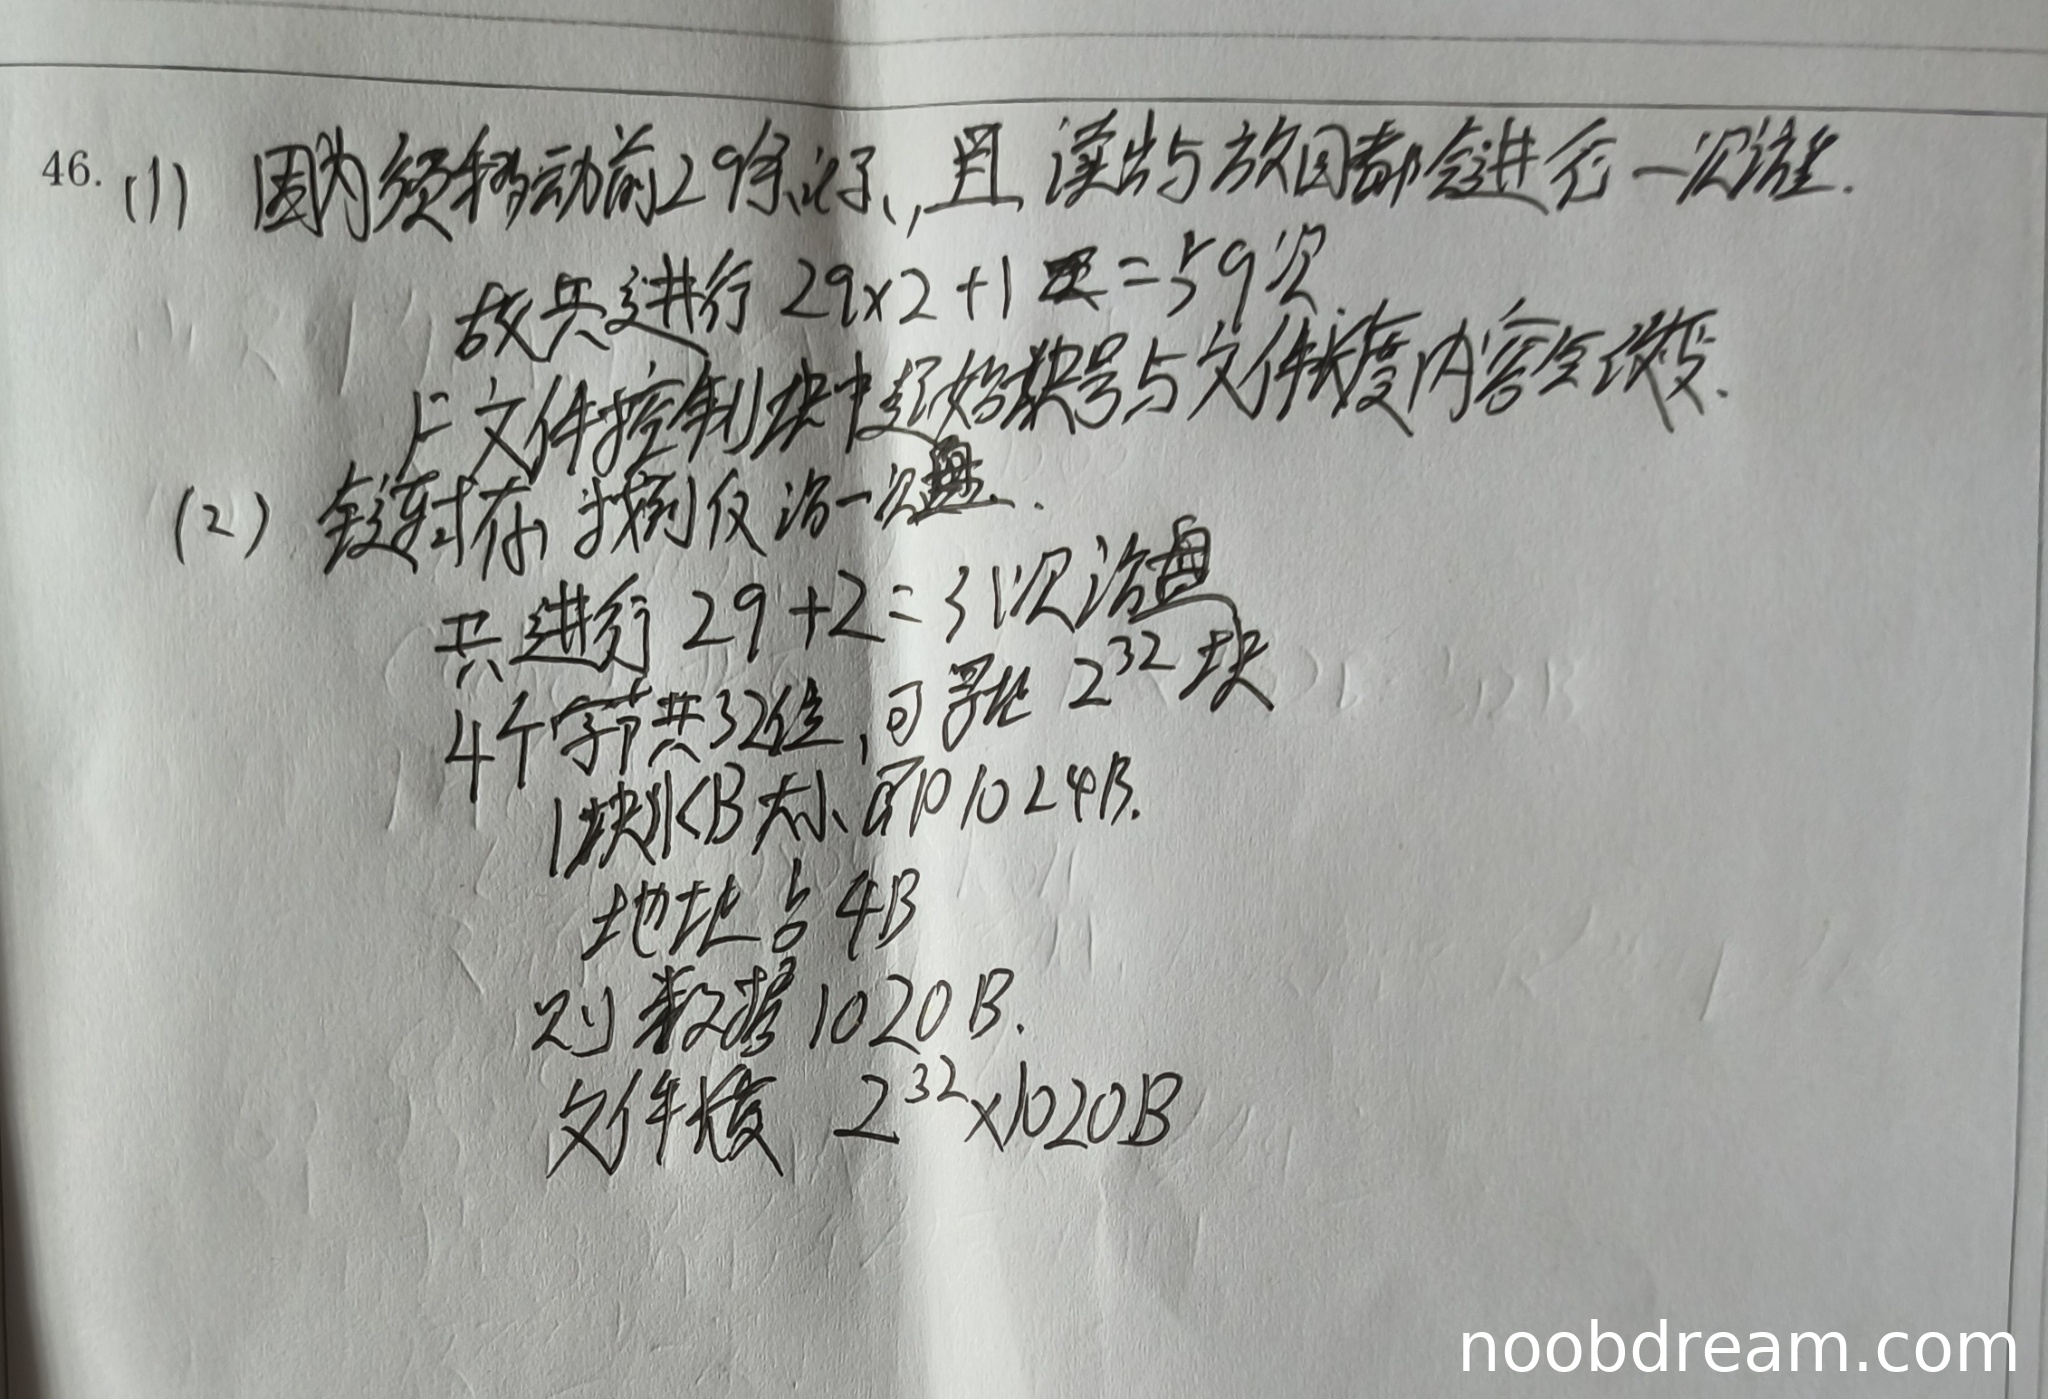 46. (1) 因为须移动前29条记录,且读出与放回都会进行一次访盘.
故共进行 29×2+1 = 59次.
F文件控制块中起始块号与文件长度内容会改变.
(2) 链式存, 找到仅访一次盘.
共进行 29+2=31次访盘
4个字节共32位,可寻址 2^32 块
1块1KB大小即1024B.
地址占4B
则数据1020B.
文件长度 2^32×1020B
noobdream.com